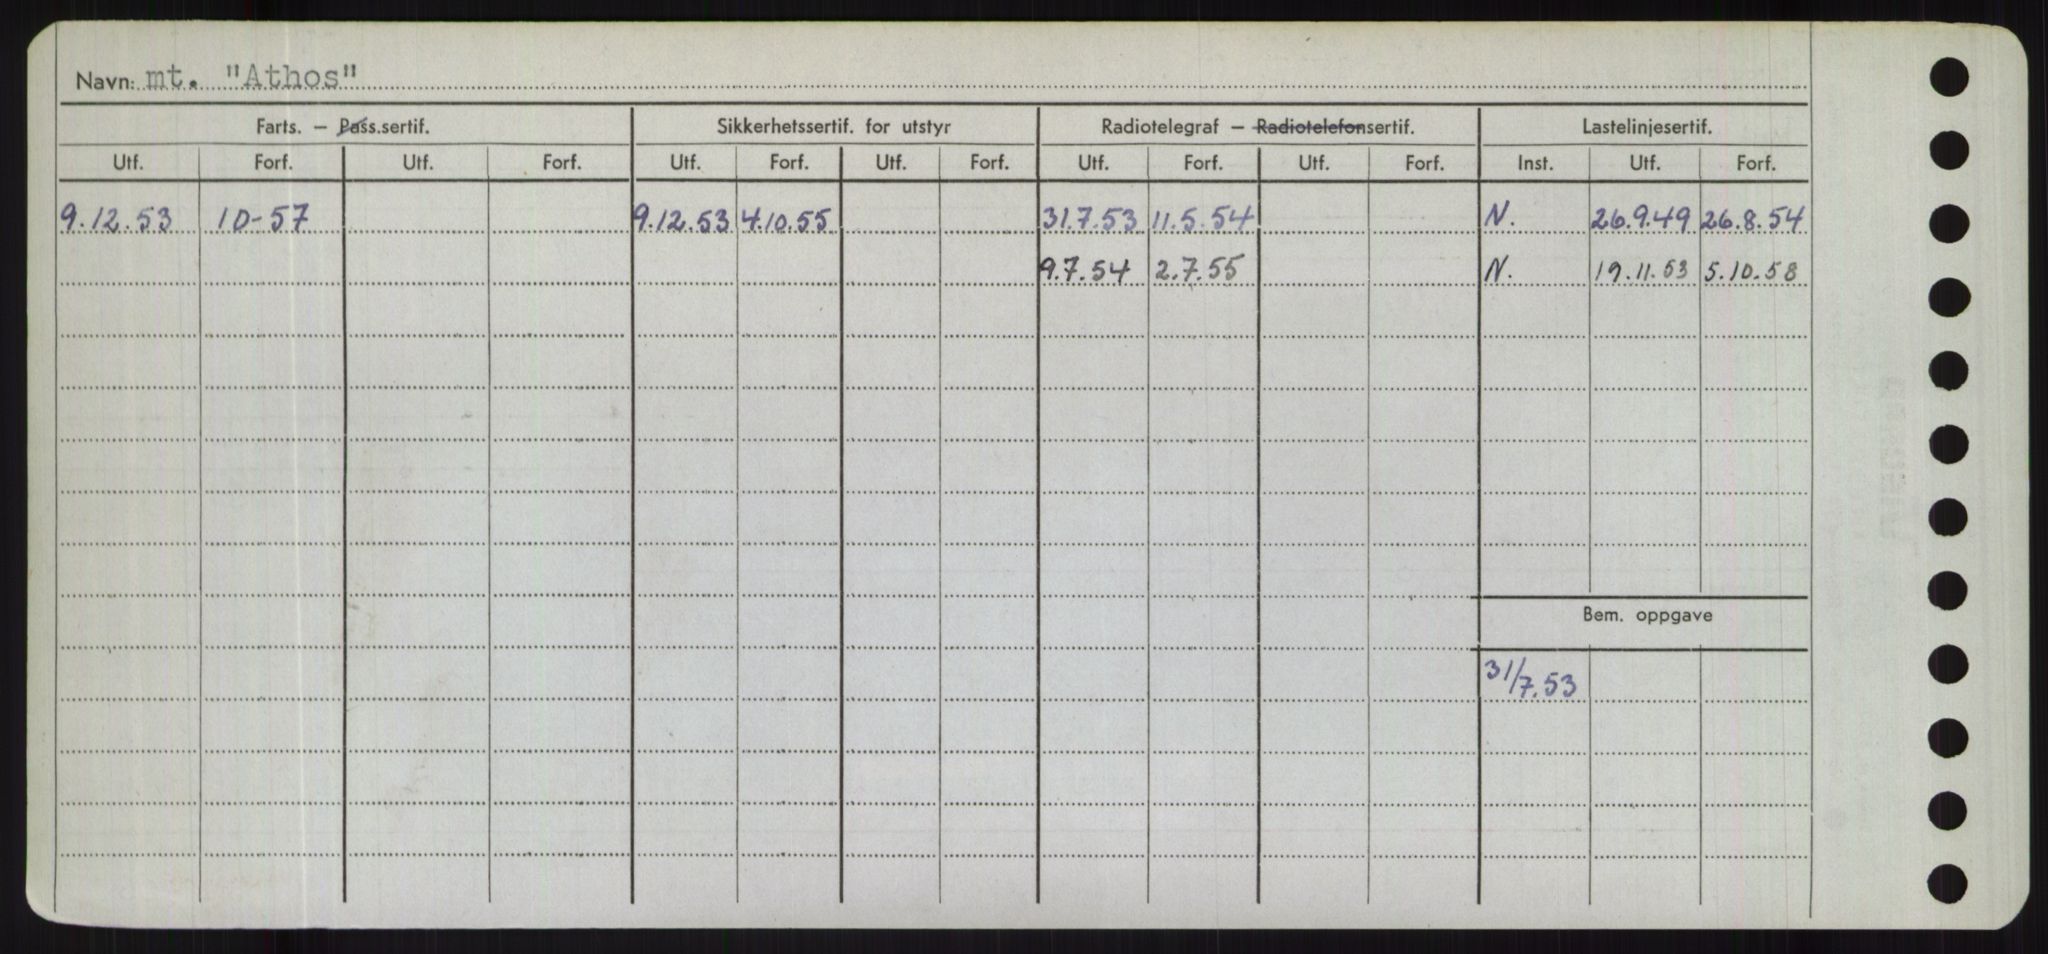 Navn: mt. "Athos"
Farts. – Pass.sertif. Sikkerhetssertif. for utstyr Radiotelegraf – Radiotelefonsertif. Lastelinjesertif.
Utf. Forf. Utf. Forf. Utf. Forf. Utf. Forf. Utf. Forf. Utf. Forf. Inst. Utf. Forf.
9.12.53 10-57 9.12.53 4.10.55 31.7.53 11.5.54 N. 26.9.49 26.8.54
9.7.54 2.7.55 N. 19.11.53 5.10.58
Bem. oppgave
31/7.53